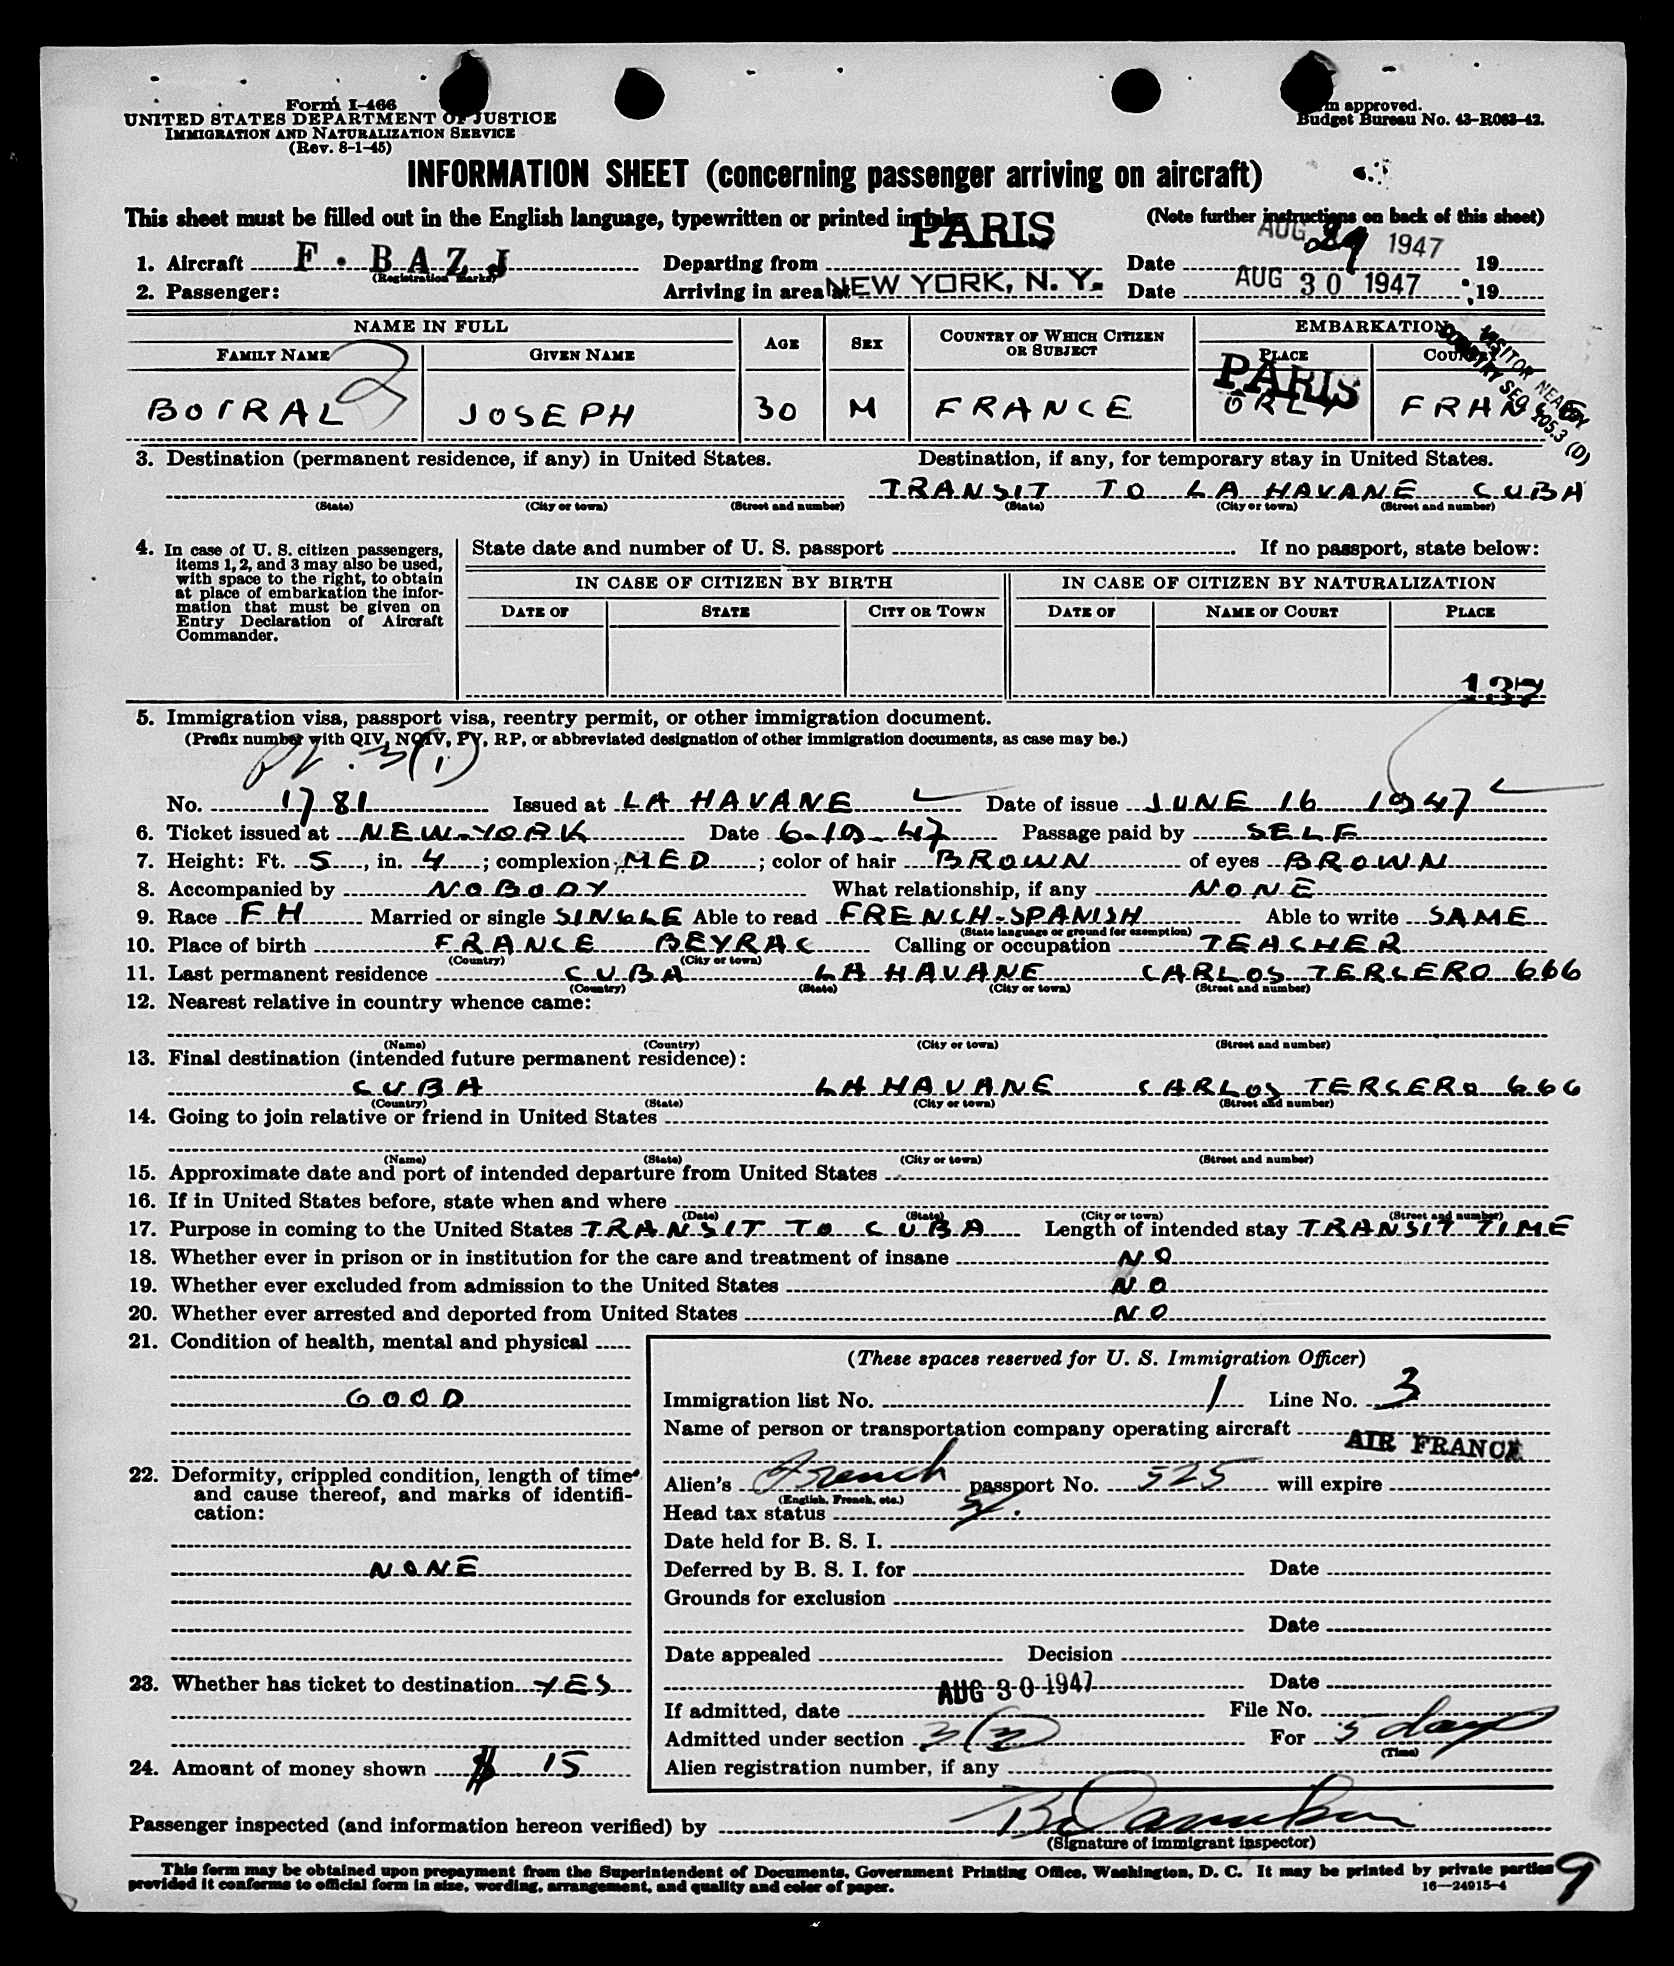 Form I-466
UNITED STATES DEPARTMENT OF JUSTICE
IMMIGRATION AND NATURALIZATION SERVICE
(Rev. 8-1-45)
Form approved.
Budget Bureau No. 43-R063-42.
INFORMATION SHEET (concerning passenger arriving on aircraft)
This sheet must be filled out in the English language, typewritten or printed in ink. (Note further instructions on back of this sheet)
1. Aircraft F. BAZJ (Registration marks) Departing from PARIS Date AUG 29 1947 19
2. Passenger: Arriving in area at NEW YORK, N. Y. Date AUG 30 1947 19
NAME IN FULL AGE SEX COUNTRY OF WHICH CITIZEN OR SUBJECT EMBARKATION
FAMILY NAME GIVEN NAME PLACE COUNTRY
BOIRAL JOSEPH 30 M FRANCE PARIS ORLY FRANCE
3. Destination (permanent residence, if any) in United States. Destination, if any, for temporary stay in United States.
TRANSIT TO LA HAVANE CUBA
(State) (City or town) (Street and number) (State) (City or town) (Street and number)
4. In case of U. S. citizen passengers, items 1, 2, and 3 may also be used, with space to the right, to obtain at place of embarkation the information that must be given on Entry Declaration of Aircraft Commander.
State date and number of U. S. passport . If no passport, state below:
IN CASE OF CITIZEN BY BIRTH IN CASE OF CITIZEN BY NATURALIZATION
DATE OF STATE CITY OR TOWN DATE OF NAME OF COURT PLACE
137
5. Immigration visa, passport visa, reentry permit, or other immigration document.
(Prefix number with QIV, NQIV, PV, RP, or abbreviated designation of other immigration documents, as case may be.)
3(1)
No. 1781 Issued at LA HAVANE Date of issue JUNE 16 1947
6. Ticket issued at NEW-YORK Date 6-19-47 Passage paid by SELF
7. Height: Ft. 5, in. 4; complexion MED; color of hair BROWN of eyes BROWN
8. Accompanied by NOBODY What relationship, if any NONE
9. Race FH Married or single SINGLE Able to read FRENCH-SPANISH Able to write SAME
(State language or ground for exemption)
10. Place of birth FRANCE BEYRAC Calling or occupation TEACHER
(Country) (City or town)
11. Last permanent residence CUBA LA HAVANE CARLOS TERCERO 666
(Country) (State) (City or town) (Street and number)
12. Nearest relative in country whence came:
(Name) (Country) (City or town) (Street and number)
13. Final destination (intended future permanent residence):
CUBA LA HAVANE CARLOS TERCERO 666
(Country) (State) (City or town) (Street and number)
14. Going to join relative or friend in United States
(Name) (State) (City or town) (Street and number)
15. Approximate date and port of intended departure from United States
16. If in United States before, state when and where
(Date) (State) (City or town) (Street and number)
17. Purpose in coming to the United States TRANSIT TO CUBA Length of intended stay TRANSIT TIME
18. Whether ever in prison or in institution for the care and treatment of insane NO
19. Whether ever excluded from admission to the United States NO
20. Whether ever arrested and deported from United States NO
21. Condition of health, mental and physical
GOOD
22. Deformity, crippled condition, length of time and cause thereof, and marks of identification:
NONE
23. Whether has ticket to destination YES
24. Amount of money shown $ 15
(These spaces reserved for U. S. Immigration Officer)
Immigration list No. 1 Line No. 3
Name of person or transportation company operating aircraft AIR FRANCE
Alien's French passport No. 525 will expire
(English, French, etc.)
Head tax status
Date held for B. S. I.
Deferred by B. S. I. for Date
Grounds for exclusion
Date
Date appealed Decision
Date
If admitted, date AUG 30 1947 File No.
Admitted under section 3(3) For 5 days
(Time)
Alien registration number, if any
Passenger inspected (and information hereon verified) by
(Signature of immigrant inspector)
This form may be obtained upon prepayment from the Superintendent of Documents, Government Printing Office, Washington, D. C. It may be printed by private parties
provided it conforms to official form in size, wording, arrangement, and quality and color of paper.
16—24915-4
9